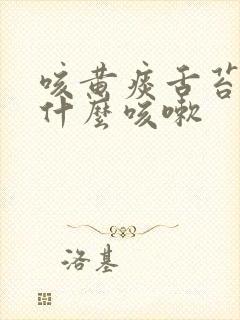 咳黄痰舌苔
什麼咳嗽
洛基